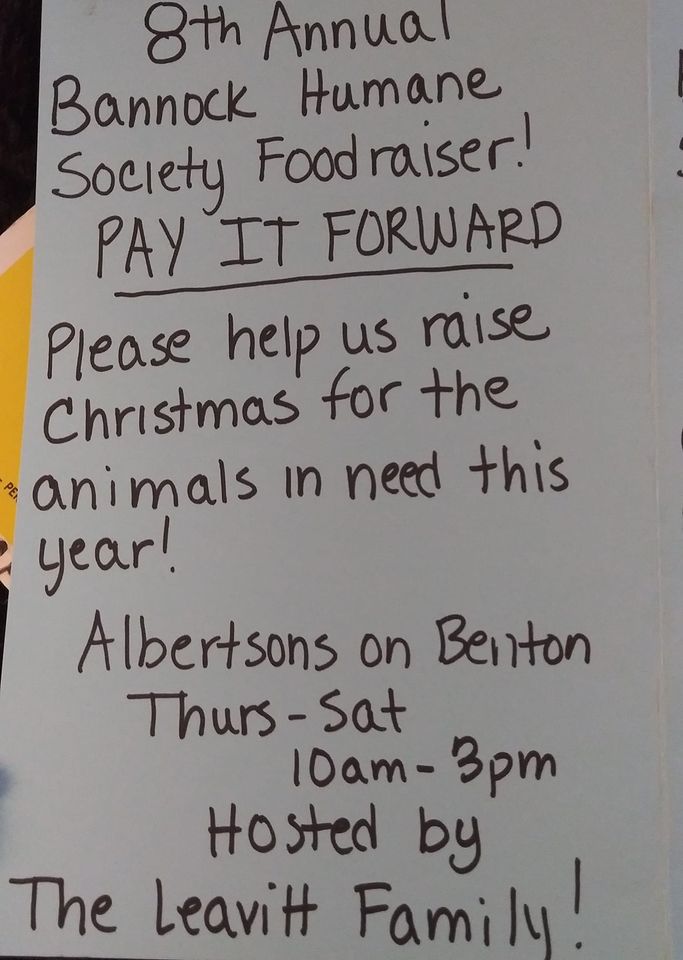 8th Annual
Bannock Humane
Society Foodraiser!
PAY IT FORWARD
Please help us raise
Christmas for the
animals in need this
year!
Albertsons on Benton
Thurs - Sat
10am - 3pm
Hosted by
The Leavitt Family!